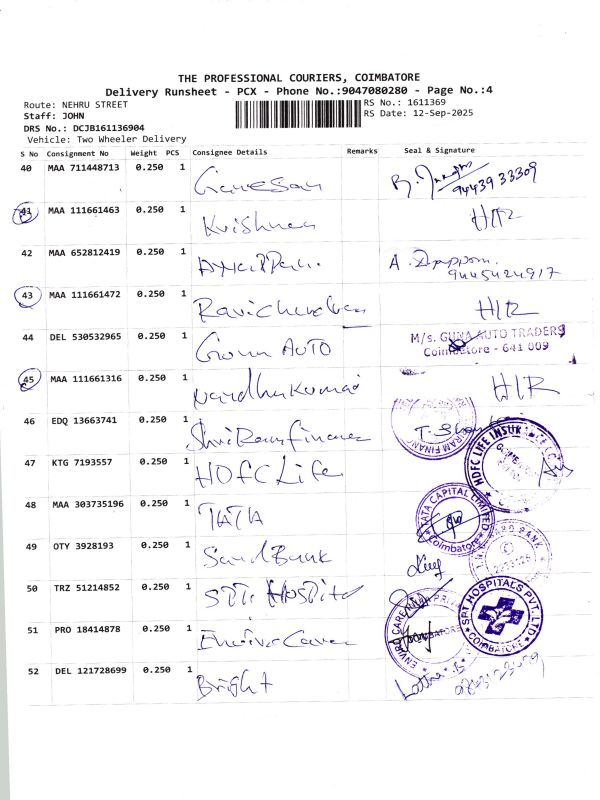 THE PROFESSIONAL COURIERS, COIMBATORE
Delivery Runsheet - PCX - Phone No.:9047080280 - Page No.:4
Route: NEHRU STREET
RS No.: 1611369
Staff: JOHN
RS Date: 12-Sep-2025
DRS No.: DCJB161136904
Vehicle: Two Wheeler Delivery
S No Consignment No Weight PCS Consignee Details Remarks Seal & Signature
40 MAA 711448713 0.250 1 Ganesan 9443933309
41 MAA 111661463 0.250 1 Krishnan HIR
42 MAA 652812419 0.250 1 A. 9445424917
43 MAA 111661472 0.250 1 Ravichendran HIR
44 DEL 530532965 0.250 1 Guna AUTO M/s. GUNA AUTO TRADERS
Coimbatore - 641 009
45 MAA 111661316 0.250 1 Nandhakumar HIR
46 EDQ 13663741 0.250 1 Shri Ram Finance
47 KTG 7193557 0.250 1 HDFC Life HDFC LIFE
48 MAA 303735196 0.250 1 TATA TATA CAPITAL LIMITED
Coimbatore
49 OTY 3928193 0.250 1 Sand Bank BANK
50 TRZ 51214852 0.250 1 Hospital SPT HOSPITALS PVT. LTD
COIMBATORE
51 PRO 18414878 0.250 1 ENVIRO CARE
52 DEL 121728699 0.250 1 Bright Latha